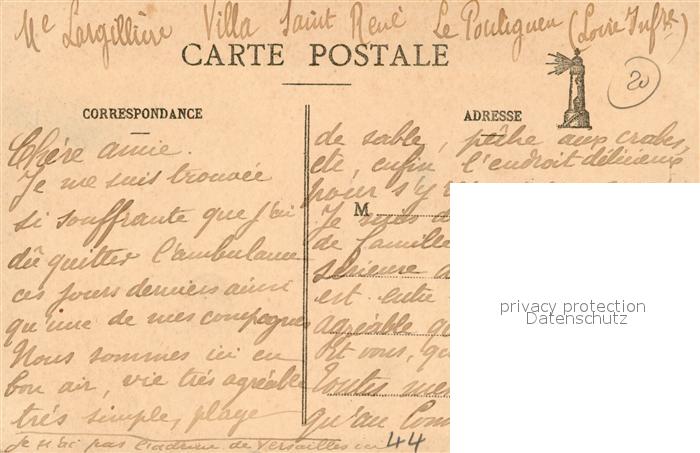 Me Largillière Villa Saint René Le Pouliguen (Loire Infre)
CARTE POSTALE
20
CORRESPONDANCE
ADRESSE
Chère amie.
Je me suis trouvée
si souffrante que j'ai
dû quitter l'ambulance
ces jours derniers ainsi
qu'une de mes compagnes
Nous sommes ici en
bon air, vie très agréable
très simple, plage
de sable, pêche aux crabes,
etc, enfin l'endroit délicieux
pour s'y
M
Je suis
de famille
est entre
agréable
Et vous,
Toutes mes
qu'au
je n'ai pas l'adresse de Versailles
44
privacy protection
Datenschutz